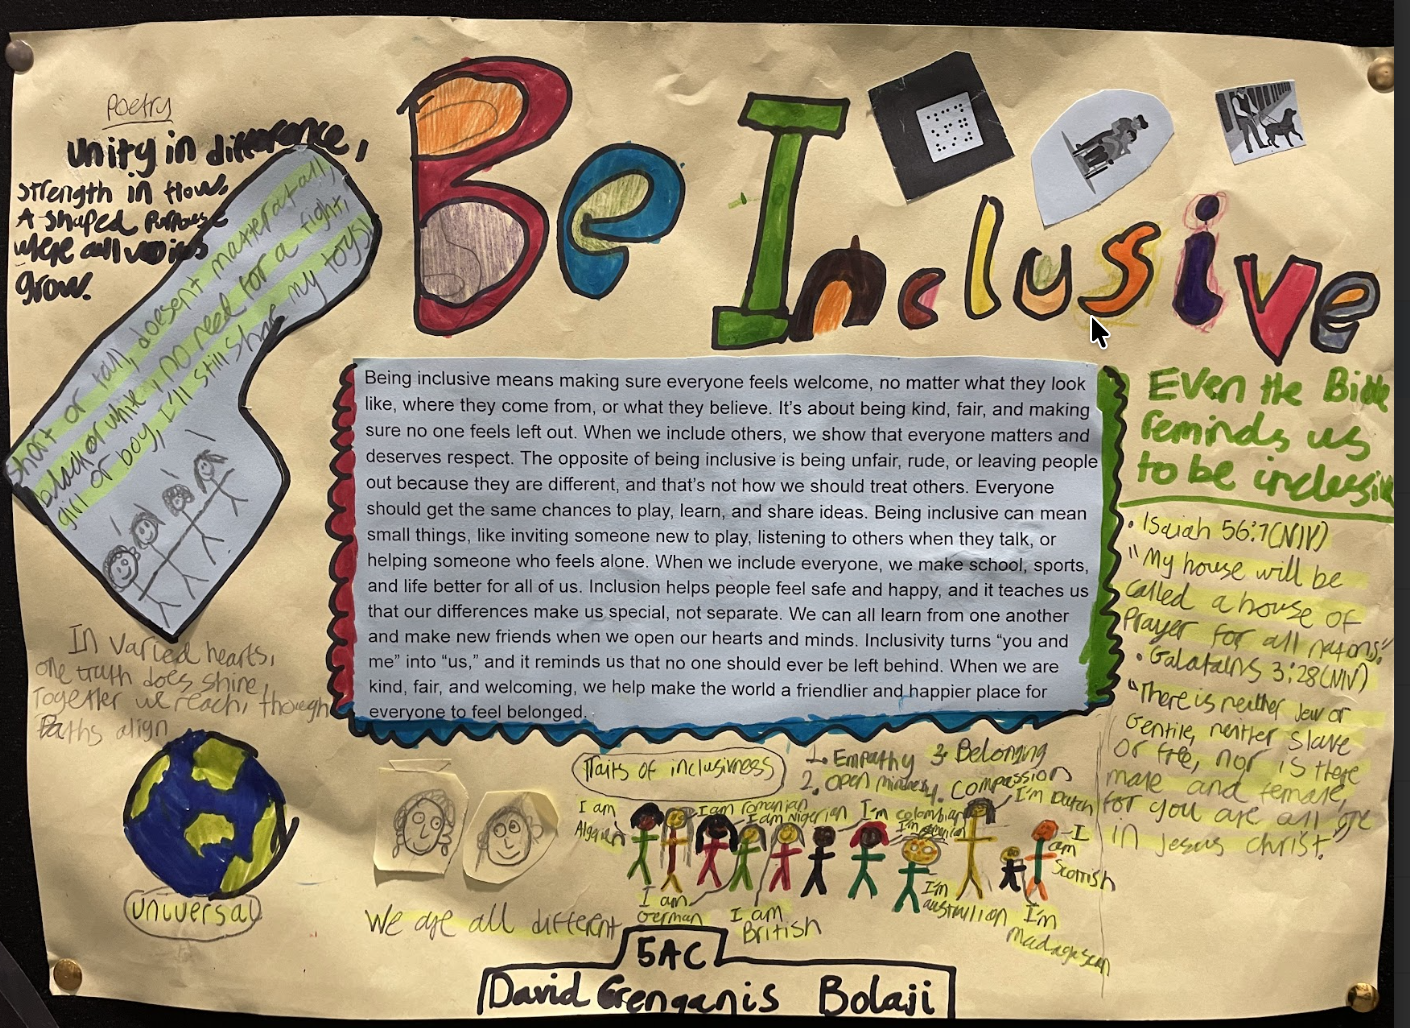 Be Inclusive
Poetry
Unity in difference,
strength in flow.
A shaped purpose
where all voices
grow.
short or tall, doesent matter at all,
black or white, no need for a fight,
girl or boy, I'll still share my toys!
In varied hearts,
one truth does shine,
Together we reach, though
Paths align
universal
Being inclusive means making sure everyone feels welcome, no matter what they look
like, where they come from, or what they believe. It's about being kind, fair, and making
sure no one feels left out. When we include others, we show that everyone matters and
deserves respect. The opposite of being inclusive is being unfair, rude, or leaving people
out because they are different, and that's not how we should treat others. Everyone
should get the same chances to play, learn, and share ideas. Being inclusive can mean
small things, like inviting someone new to play, listening to others when they talk, or
helping someone who feels alone. When we include everyone, we make school, sports,
and life better for all of us. Inclusion helps people feel safe and happy, and it teaches us
that our differences make us special, not separate. We can all learn from one another
and make new friends when we open our hearts and minds. Inclusivity turns “you and
me” into “us,” and it reminds us that no one should ever be left behind. When we are
kind, fair, and welcoming, we help make the world a friendlier and happier place for
everyone to feel belonged.
Even the Bible
reminds us
to be inclusive
• Isaiah 56:7(NIV)
"My house will be
called a house of
Prayer for all nations."
• Galatains 3:28(NIV)
"There is neither Jew or
Gentile, neither slave
or free, nor is there
male and female,
for you are all one
in Jesus Christ."
Traits of inclusivness
1. Empathy 3. Belonging
2. Open mindness 4. Compassion
I am
Algerian
I am romanian
I am Nigerian
I'm Colombian
I'm Dutch
I am
Scottish
I am
German
I am
British
I'm
australian
I'm
madagascan
We are all different
5AC
David Grenganis Bolaji